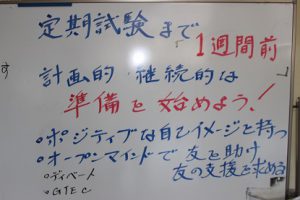 定期試験まで
1週間前
す
計画的 継続的な
準備を始めよう!
•ポジティブな自己イメージを持つ
•オープンマインドで 友を助け
友の支援を求める
•ディベート
•GTEC